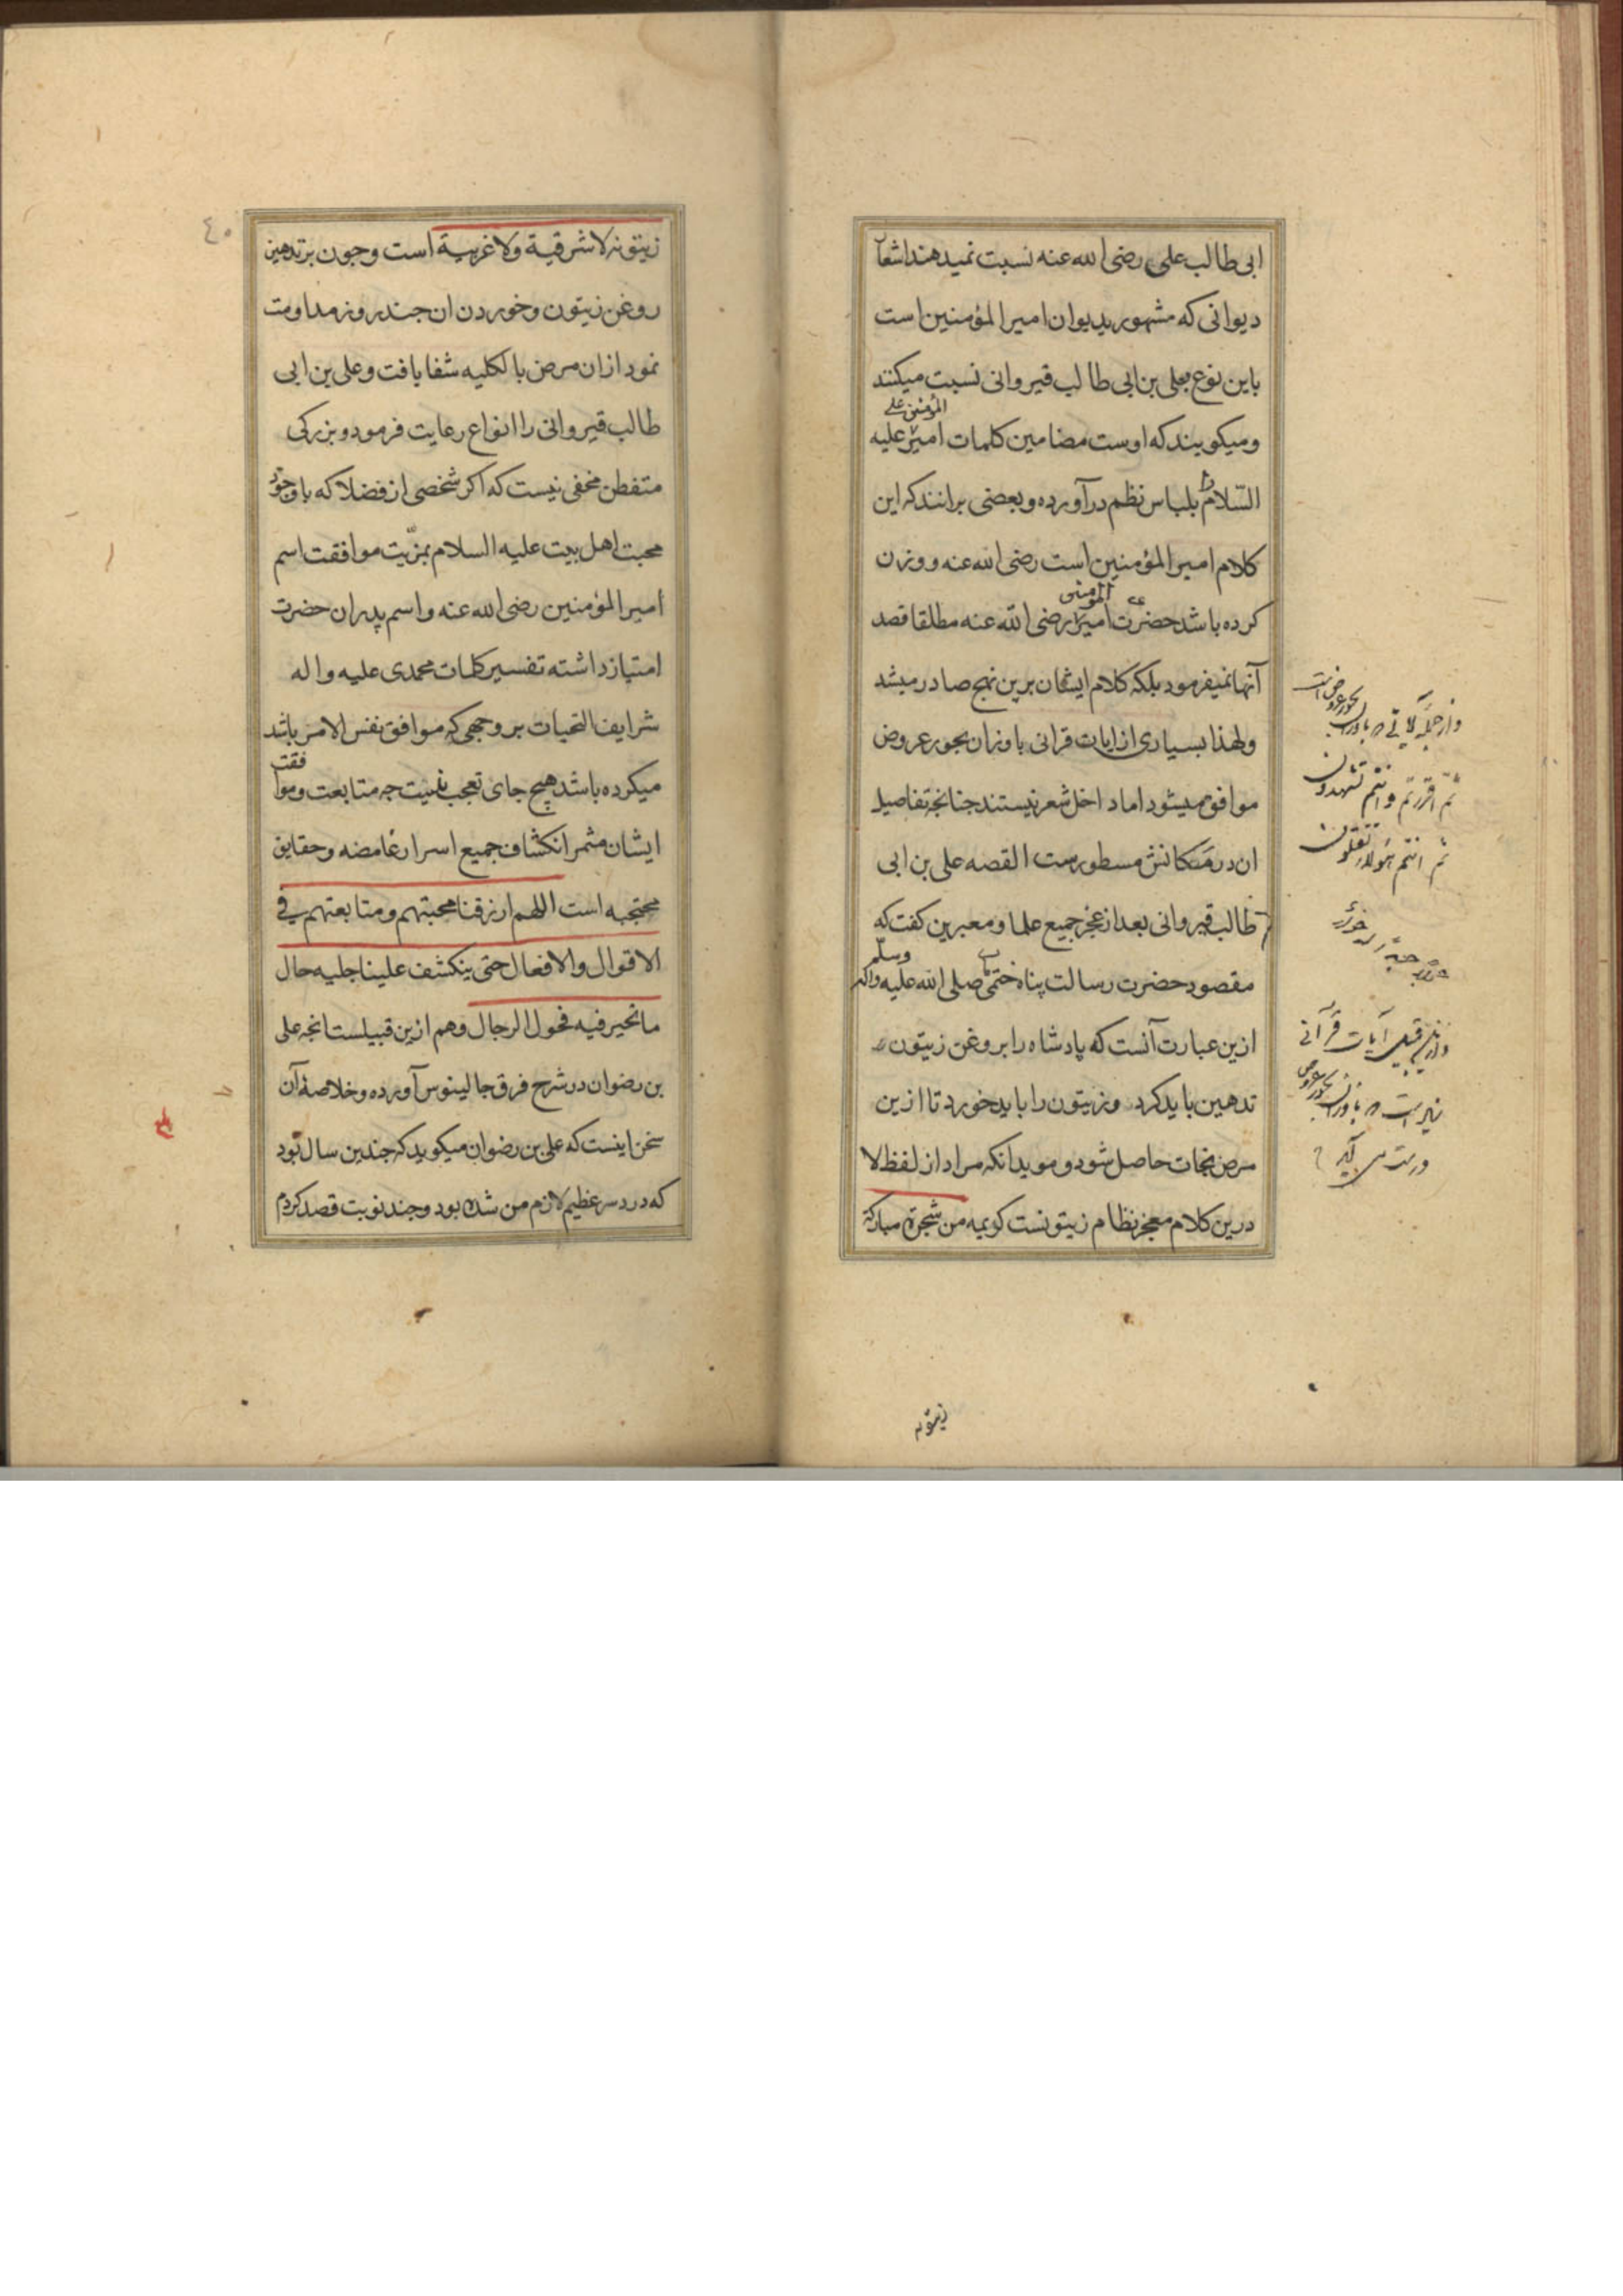 ابی طالب علی رضی الله عنه نسبت نمیدهند اشعار
دیوانی که مشهور بدیوان امیر المؤمنین است
باین نوع بعلی بن ابی طالب قیروانی نسبت میکنند
المؤمنین علی
ومیکویند که اوست مضامین کلمات امیر علیه
السّلام بلباس نظم درآورده وبعضی برانند که این
کلام امیر المؤمنین است رضی الله عنه ووزن
المؤمنین
کرده باشد حضرت امیر رضی الله عنه مطلقا قصد
آنها نمیفرمود بلکه کلام ایشان برین نهج صادر میشد
ولهذا بسیاری از ایات قرانی باوزان بحور عروض
موافق میشود اما داخل شعر نیستند جنانجه تفاصیل
ان در مکانش مسطورست القصه علی بن ابی
طالب قیروانی بعد از عجز جمیع علما ومعبرین کفت که
وسلّم
مقصود حضرت رسالت پناه ختمی صلی الله علیه واله
ازین عبارت آنست که پادشاه را بروغن زیتون
تدهین باید کرد وزیتون را باید خورد تا ازین
مرض نجات حاصل شود وموید انکه مراد از لفظ لا
درین کلام معجز نظام زیتونست کویمه من شجرة مبارکة
ثم اقررتم وانتم تشهدون
ثم انتم هؤلاء تقتلون
وازین قبیل آیات قرآنی
زیتونه
٤٠
زیتونه لا شرقیة ولا غربیة است وجون بر تدهین
روغن زیتون وخوردن ان جند روز مداومت
نمود ازان مرض بالکلیه شفا یافت وعلی بن ابی
طالب قیروانی را انواع رعایت فرمود وبزرکی
متفطن مخفی نیست که اکر شخصی از فضلا که باوجود
محبت اهل بیت علیه السلام بمزیّت موافقت اسم
امیر المؤمنین رضی الله عنه واسم پدران حضرت
امتیاز داشته تفسیر کلمات محمدی علیه واله
شرایف التحیات بر وجهی که موافق نفس الامر باشد
میکرده باشد هیچ جای تعجب نیست جه متابعت وموافقت
ایشان مثمر انکشاف جمیع اسرار غامضه وحقایق
محتجبه است اللهم ارزقنا محبتهم ومتابعتهم فی
الاقوال والافعال حتی ینکشف علینا جلیه حال
ما تحیر فیه فحول الرجال وهم ازین قبیلست انجه علی
بن رضوان در شرح فرق جالینوس آورده وخلاصۀ آن
سخن اینست که علی بن رضوان میکوید که جندین سال بود
که درد سر عظیم لازم من شده بود وجند نوبت قصد کردم